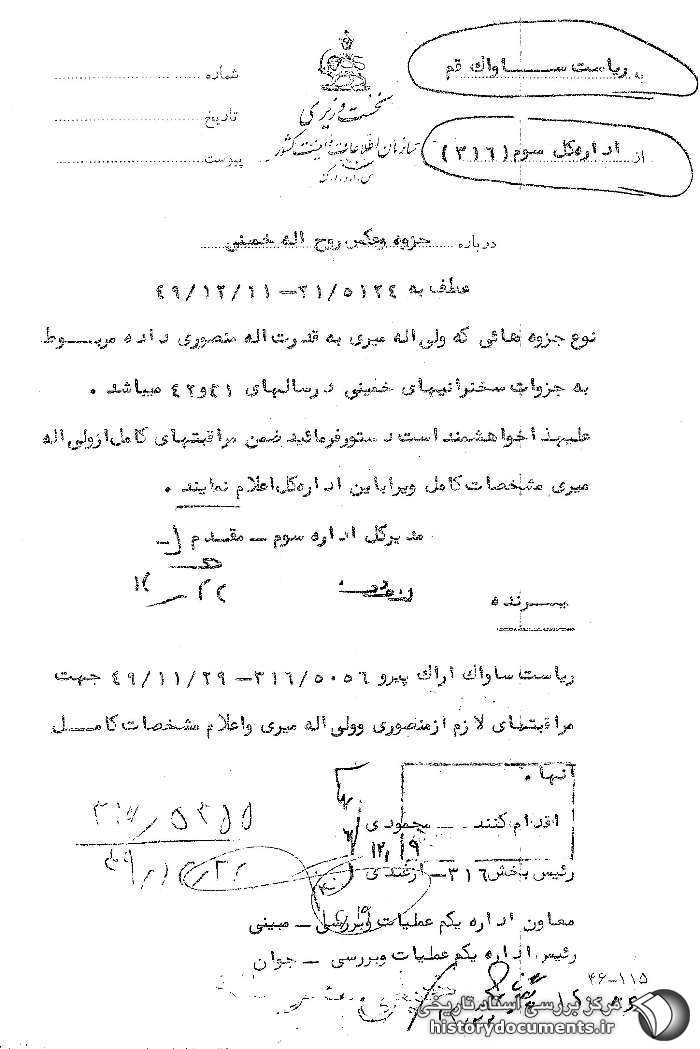 به ریاست ســـاواك قم
از اداره‌کل سوم (۳۱۶)
نخست وزیری
سازمان اطلاعات و امنیت کشور
شماره
تاریخ
پیوست
درباره جزوه وعکس روح اله خمینی
عطف به ۲۱/۵۱۲۴–۴۹/۱۲/۱۱
نوع جزوه هائی که ولی اله میری به قدرت اله منصوری داده مربـــوط
به جزوات سخنرانیهای خمینی درسالهای ۴۱و۴۲ میباشد .
علیهذا خواهشمند است دستورفرمائید ضمن مراقبتهای کامل ازولی اله
میری مشخصات کامل ویراباین اداره‌کل اعلام نمایند .
مدیرکل اداره سوم – مقدم
۱۲ / ۲۲
پـــرنده
ریاست ساواك اراك پیرو ۳۱۶/۵۰۵۶–۴۹/۱۱/۲۹ جهت
مراقبتهای لازم ازمنصوری وولی اله میری واعلام مشخصات کامــل
آنها .
اقدام کنند – محمودی
۱۲/۱۹
رئیس بخش ۳۱۶– ازغندی
معاون اداره یکم عملیات وبررسی – مبینی
رئیس اداره یکم عملیات وبررسی – جوان
۴۶-۱۱۵
مرکز بررسی اسناد تاریخی
historydocuments.ir